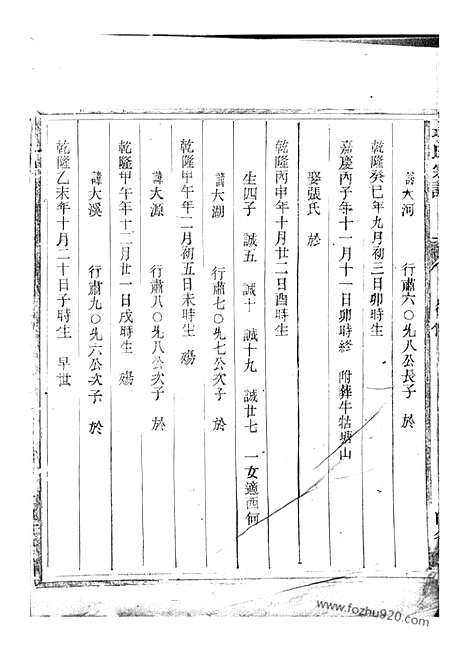 諱大河 行肅六〇先八公長子 於
乾隆癸巳年九月初三日卯時生
嘉慶丙子年十一月十一日卯時終 附葬牛牯嶺山
娶張氏 於
乾隆丙申年十月廿二日酉時生
生四子 誠五 誠十 誠十九 誠廿七 一女適西何
諱大湖 行肅七〇先七公次子 於
乾隆甲午年二月初五日未時生 殤
諱大源 行肅八〇先八公次子 於
乾隆甲午年十二月廿一日戌時生 殤
諱大溪 行肅九〇先六公次子 於
乾隆乙未年十月二十日子時生 早世
www.fozhu920.com